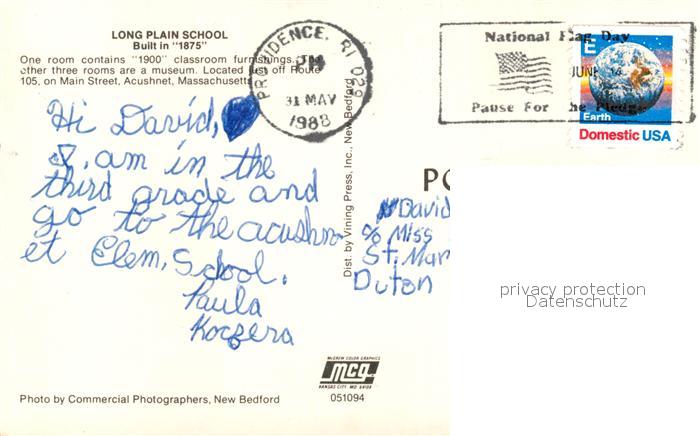 LONG PLAIN SCHOOL
Built in "1875"
One room contains "1900" classroom furnishings. The
other three rooms are a museum. Located just off Route
105, on Main Street, Acushnet, Massachusetts
PROVIDENCE, RI 029
PM
31 MAY
1988
National Flag Day
JUNE 14
Pause For the Pledge
E
Earth
Domestic USA
Hi David,
I am in the
third grade and
go to the acushn
et Elem. School.
Paula
Koczera
Dist. by Vining Press, Inc., New Bedford
PO
David
c/o Miss
St. Mar
Duton
privacy protection
Datenschutz
McGREW COLOR GRAPHICS
mcg
KANSAS CITY, MO 64108
Photo by Commercial Photographers, New Bedford
051094